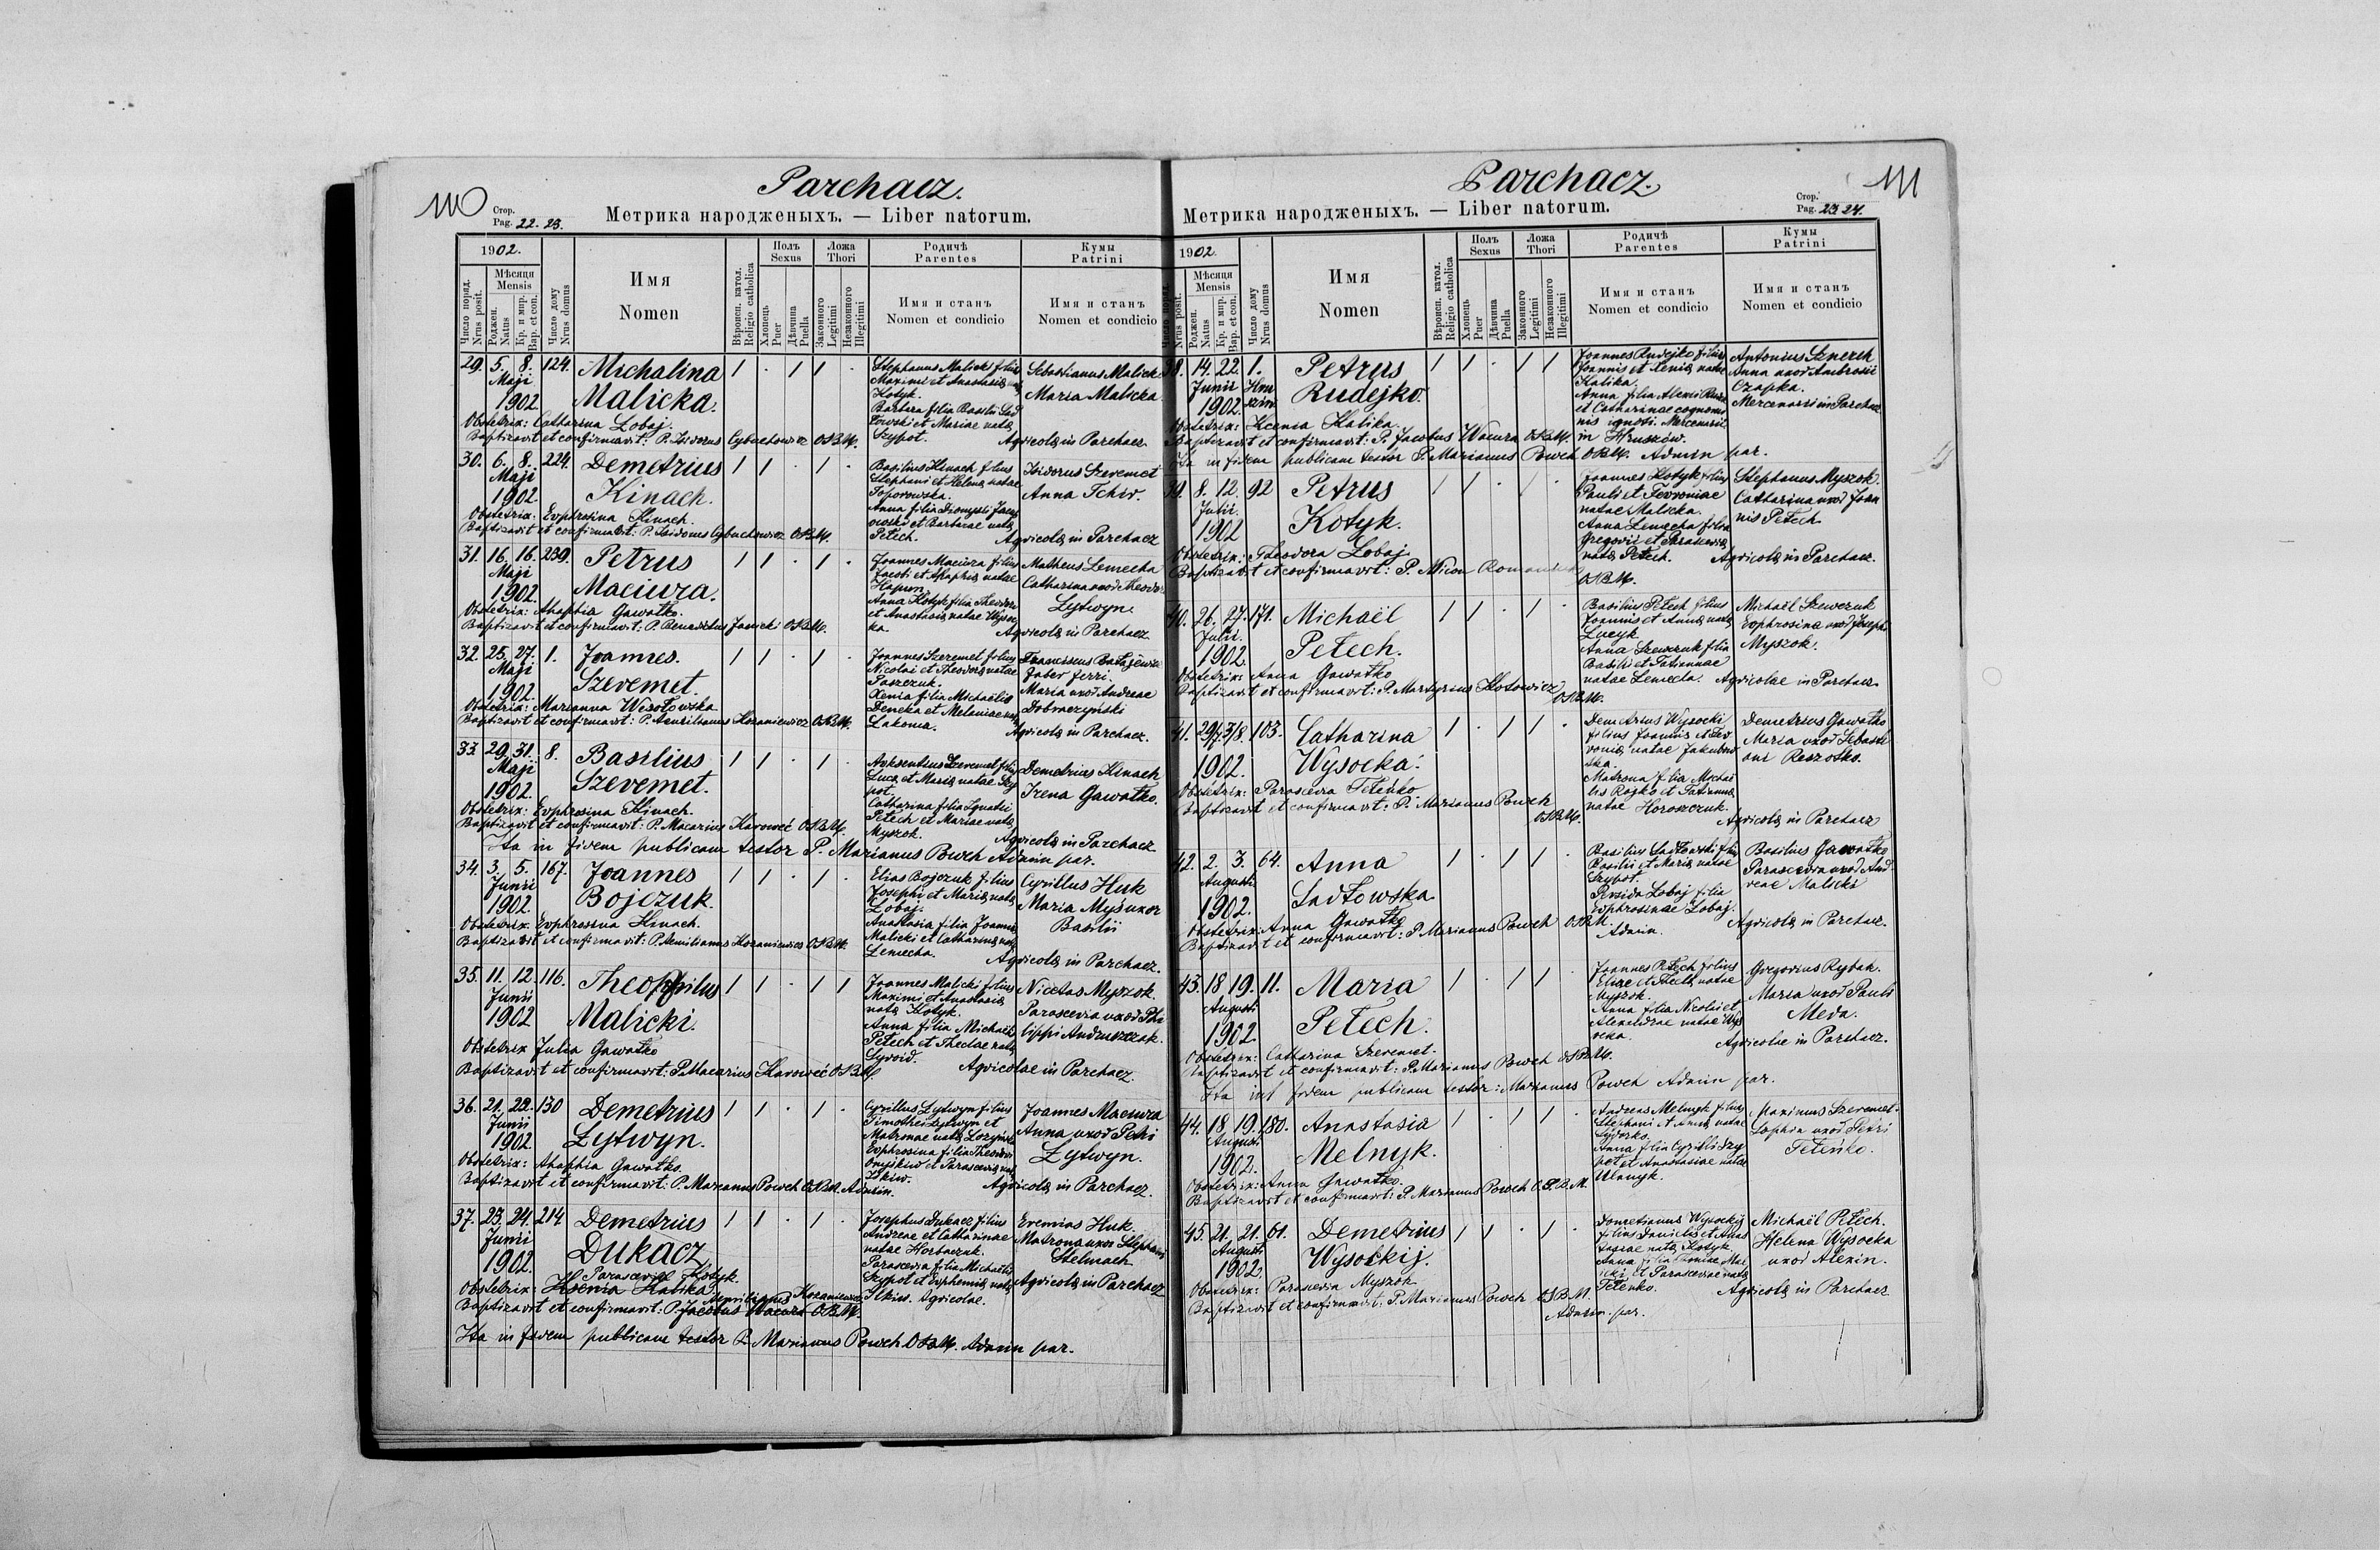 Parchacz.
110
Стор.
Pag. 22. 23.
Метрика народженыхъ. — Liber natorum.
1902.
Число поряд.
Nrus posit.
Мѣсяця
Mensis
Роджен.
Natus
Кр. и мир.
Bap. et con.
Число дому
Nrus domus
Имя
Nomen
Вѣроисп. катол.
Religio catholica
Полъ
Sexus
Хлопець
Puer
Дѣвчина
Puella
Ложа
Thori
Законного
Legitimi
Незаконного
Illegitimi
Родичѣ
Parentes
Имя и станъ
Nomen et condicio
Кумы
Patrini
Имя и станъ
Nomen et condicio
29. 5. 8. 124. Michalina 1 . 1 1 .
Maji
1902. Malicka.
Stephanus Malicki filius
Maximi et Anastasiae natae
Kotyk.
Barbara filia Basilii Sad
łowski et Mariae natae
Szypot.
Sebastianus Malicki
Maria Malicka
Agricolae in Parchacz.
Obstetrix: Catharina Lobaj.
Baptizavit et confirmavit: P. Isidorus Cybuchowicz OSBM.
30. 6. 8. 224. Demetrius 1 1 . 1 .
Maji
1902. Kinach.
Basilius Kinach filius
Stephani et Helenae natae
Toporowska.
Anna filia Dionysii
et Barbarae natae
Petech.
Isidorus Szeremet
Anna Tchir.
Agricolae in Parchacz
Obstetrix: Evphrosina Kinach.
Baptizavit et confirmavit: P. Isidorus Cybuchowicz OSBM.
31. 16. 16. 239. Petrus 1 1 . 1 .
Maji
1902. Maciura.
Joannes Maciura filius
Jacobi et Ahaphiae natae
Anna Kotyk filia Theodori
et Anastasiae natae Wysoc
ka.
Matheus Lemecha
Catharina uxor Theodori
Lytwyn.
Agricolae in Parchacz
Obstetrix: Ahaphia Gawałko.
Baptizavit et confirmavit: P. Benedictus Janicki OSBM.
32. 25. 27. 1. Joannes. 1 1 . 1 .
Maji
1902. Szeremet.
Joannes Szeremet filius
Nicolai et Theodorae natae
Paszczuk.
Xenia filia Michaëlis
Deneka et Melaniae natae
Łakoma.
Franciscus
faber ferri.
Maria uxor Andreae
Dobraczyński
Agricolae in Parchacz.
Obstetrix: Marianna Wisłotowska
Baptizavit et confirmavit: P. Aemilianus Kozaniewicz OSBM.
33. 29. 31. 8. Basilius 1 1 . 1 .
Maji
1902. Szeremet.
Avksentius Szeremet filius
Lucae et Mariae natae Szy
pot.
Catharina filia Ignatii
Petech et Mariae natae
Myszok.
Demetrius Kinach
Irena Gawałko.
Agricolae in Parchacz
Obstetrix: Evphrosina Kinach.
Baptizavit et confirmavit: P. Macarius Karoweć OSBM.
Ita in fidem publicam testor P. Marianus Powch Admin par.
34. 3. 5. 167. Joannes 1 1 . 1 .
Junii
1902. Bojczuk.
Elias Bojczuk filius
Josephi et Mariae natae
Lobaj.
Anastasia filia Joannis
Malicki et Catharinae natae
Lemecha.
Cyrillus Huk
Maria Myś uxor
Basilii
Agricolae in Parchacz.
Obstetrix: Evphrosina Kinach.
Baptizavit et confirmavit: P. Aemilianus Kozaniewicz OSBM.
35. 11. 12. 116. Theophilus 1 1 . 1 1
Junii
1902 Malicki.
Joannes Malicki filius
Maximi et Anastasiae
natae Kotyk.
Anna filia Michaëlis
Petech et Theclae natae
Syroid.
Nicetas Myszok.
Parascevia uxor Phi
lippi Andruszczak.
Agricolae in Parchacz.
Obstetrix Julia Gawałko
Baptizavit et confirmavit: P. Macarius Karoweć OSBM.
36. 21. 22. 130 Demetrius 1 1 . 1 .
Junii
1902 Lytwyn.
Cyrillus Lytwyn filius
Timothei Lytwyn et
Matronae natae
Evphrosina filia Theodori
Onyśkiw et Parasceviae natae
Ilkiw.
Joannes Maciura
Anna uxor Petri
Lytwyn.
Agricolae in Parchacz.
Obstetrix: Ahaphia Gawałko.
Baptizavit et confirmavit: P. Marianus Powch OSBM. Admin.
37. 23. 24. 214 Demetrius 1 1 . 1 .
Junii
1902. Dukacz
Josephus Dukacz filius
Andreae et Catharinae
natae Horbaczuk.
Parascevia filia Michaëlis
Szypot et Evphemiae natae
Ilkiw. Agricolae.
Eremias Huk.
Matrona uxor Stephani
Stelmach
Agricolae in Parchacz
Parascevia Kotyk.
Obstetrix: Ksenia Kalika.
Aemilianus Kozaniewicz
Baptizavit et confirmavit: P. Jacobus Wacura OSBM.
Ita in fidem publicam testor P. Marianus Powch OSBM. Admin par.
Parchacz.
111
Стор.
Pag. 23 24.
Метрика народженыхъ. — Liber natorum.
1902.
Число поряд.
Nrus posit.
Мѣсяця
Mensis
Роджен.
Natus
Кр. и мир.
Bap. et con.
Число дому
Nrus domus
Имя
Nomen
Вѣроисп. катол.
Religio catholica
Полъ
Sexus
Хлопець
Puer
Дѣвчина
Puella
Ложа
Thori
Законного
Legitimi
Незаконного
Illegitimi
Родичѣ
Parentes
Имя и станъ
Nomen et condicio
Кумы
Patrini
Имя и станъ
Nomen et condicio
38. 14. 22. 1. Petrus 1 1 . 1 1
Junii
1902. Rudejko.
Joannes Rudejko filius
Joannis et Xeniae natae
Kalika.
Anna filia Alexii
et Catharinae cognomi
nis ignoti. Mercenarii
in Hruszów.
Antonius
Anna uxor Ambrosii
Czapka.
Mercenarii in Parchacz
Obstetrix: Ksenia Kalika.
Baptizavit et confirmavit: P. Jacobus Wacura OSBM.
Ita in fidem publicam testor P. Marianus Powch OSBM. Admin par.
39. 8. 12. 92 Petrus 1 1 . 1 .
Julii
1902 Kotyk.
Joannes Kotyk filius
Pauli et Fevroniae
natae Malicka.
Anna Lemecha filia
Gregorii et Parasceviae
natae Petech.
Stephanus Myszok.
Catharina uxor Joan
nis Petech.
Agricolae in Parchacz.
Obstetrix: Theodora Lobaj.
Baptizavit et confirmavit: P. Nicon
OSBM.
40. 26. 27. 171. Michaël 1 1 . 1 .
Julii.
1902. Petech.
Basilius Petech filius
Joannis et Annae natae
Lucyk.
Anna Szewczuk filia
Basilii et Tatiannae
natae Lemecha.
Michaël Szewczuk
Evphrosina uxor Josephi
Myszok.
Agricolae in Parchacz
Obstetrix Anna Gawałko
Baptizavit et confirmavit: P. Martyrius Kotowicz
OSBM.
41. 29/7. 3/8. 103. Catharina 1 . 1 1 .
1902. Wysocka.
Demetrius Wysocki
filius Joannis et Fev
roniae natae Jakubow
ska.
Matrona filia Michaë
lis Rojko et Tatianae
natae Horoszczuk.
Demetrius Gawałko
Maria uxor Sebasti
ani Reszotko.
Agricolae in Parchacz
Obstetrix: Parascevia Teteńko.
Baptizavit et confirmavit: P. Marianus Powch
OSBM.
42. 2. 3. 64. Anna 1 . 1 1 .
Augusti
1902. Sadłowska
Basilius Sadłowski filius
Basilii et Mariae natae
Szypot.
Persida Lobaj filia
Evphrosinae Lobaj.
Basilius Gawałko
Parascevia uxor And
reae Malicki
Agricolae in Parchacz.
Obstetrix: Anna Gawałko
Baptizavit et confirmavit: P. Marianus Powch OSBM.
Admin.
43. 18 19. 11. Maria 1 . 1 1 .
Augusti
1902. Petech.
Joannes Petech filius
Eliae et Theclae natae
Myszok.
Anna filia Nicolai et
Alexandrae natae Wys
ocka.
Gregorius Rybak.
Maria uxor Pauli
Meda.
Agricolae in Parchacz.
Obstetrix: Catharina Szeremet.
Baptizavit et confirmavit: P. Marianus Powch OSBM.
Ita in fidem publicam testor: Marianus Powch Admin par.
44. 18. 19. 180. Anastasia 1 . 1 1 .
Augusti
1902. Melnyk.
Andreas Melnyk filius
Stephani et Annae natae
Anna filia Cyrilli Szy
pot et Anastasiae natae
Ulanyk.
Maximus Szeremet.
Sophia uxor Petri
Teteńko.
Obstetrix: Anna Gawałko.
Baptizavit et confirmavit: P. Marianus Powch O.S.B.M.
45. 21. 21. 61. Demetrius 1 1 . 1 .
Augusti
1902. Wysoćkij.
Dometianus Wysockij
filius Danielis et Anas
tasiae natae Kotyk.
Anna filia Thomae Mal
icki et Parasceviae natae
Tetenko.
Michaël Petech.
Helena Wysocka
uxor Alexin.
Agricolae in Parchacz
Obstetrix: Parascevia Myszok
Baptizavit et confirmavit: P. Marianus Powch OSBM.
Admin. par.